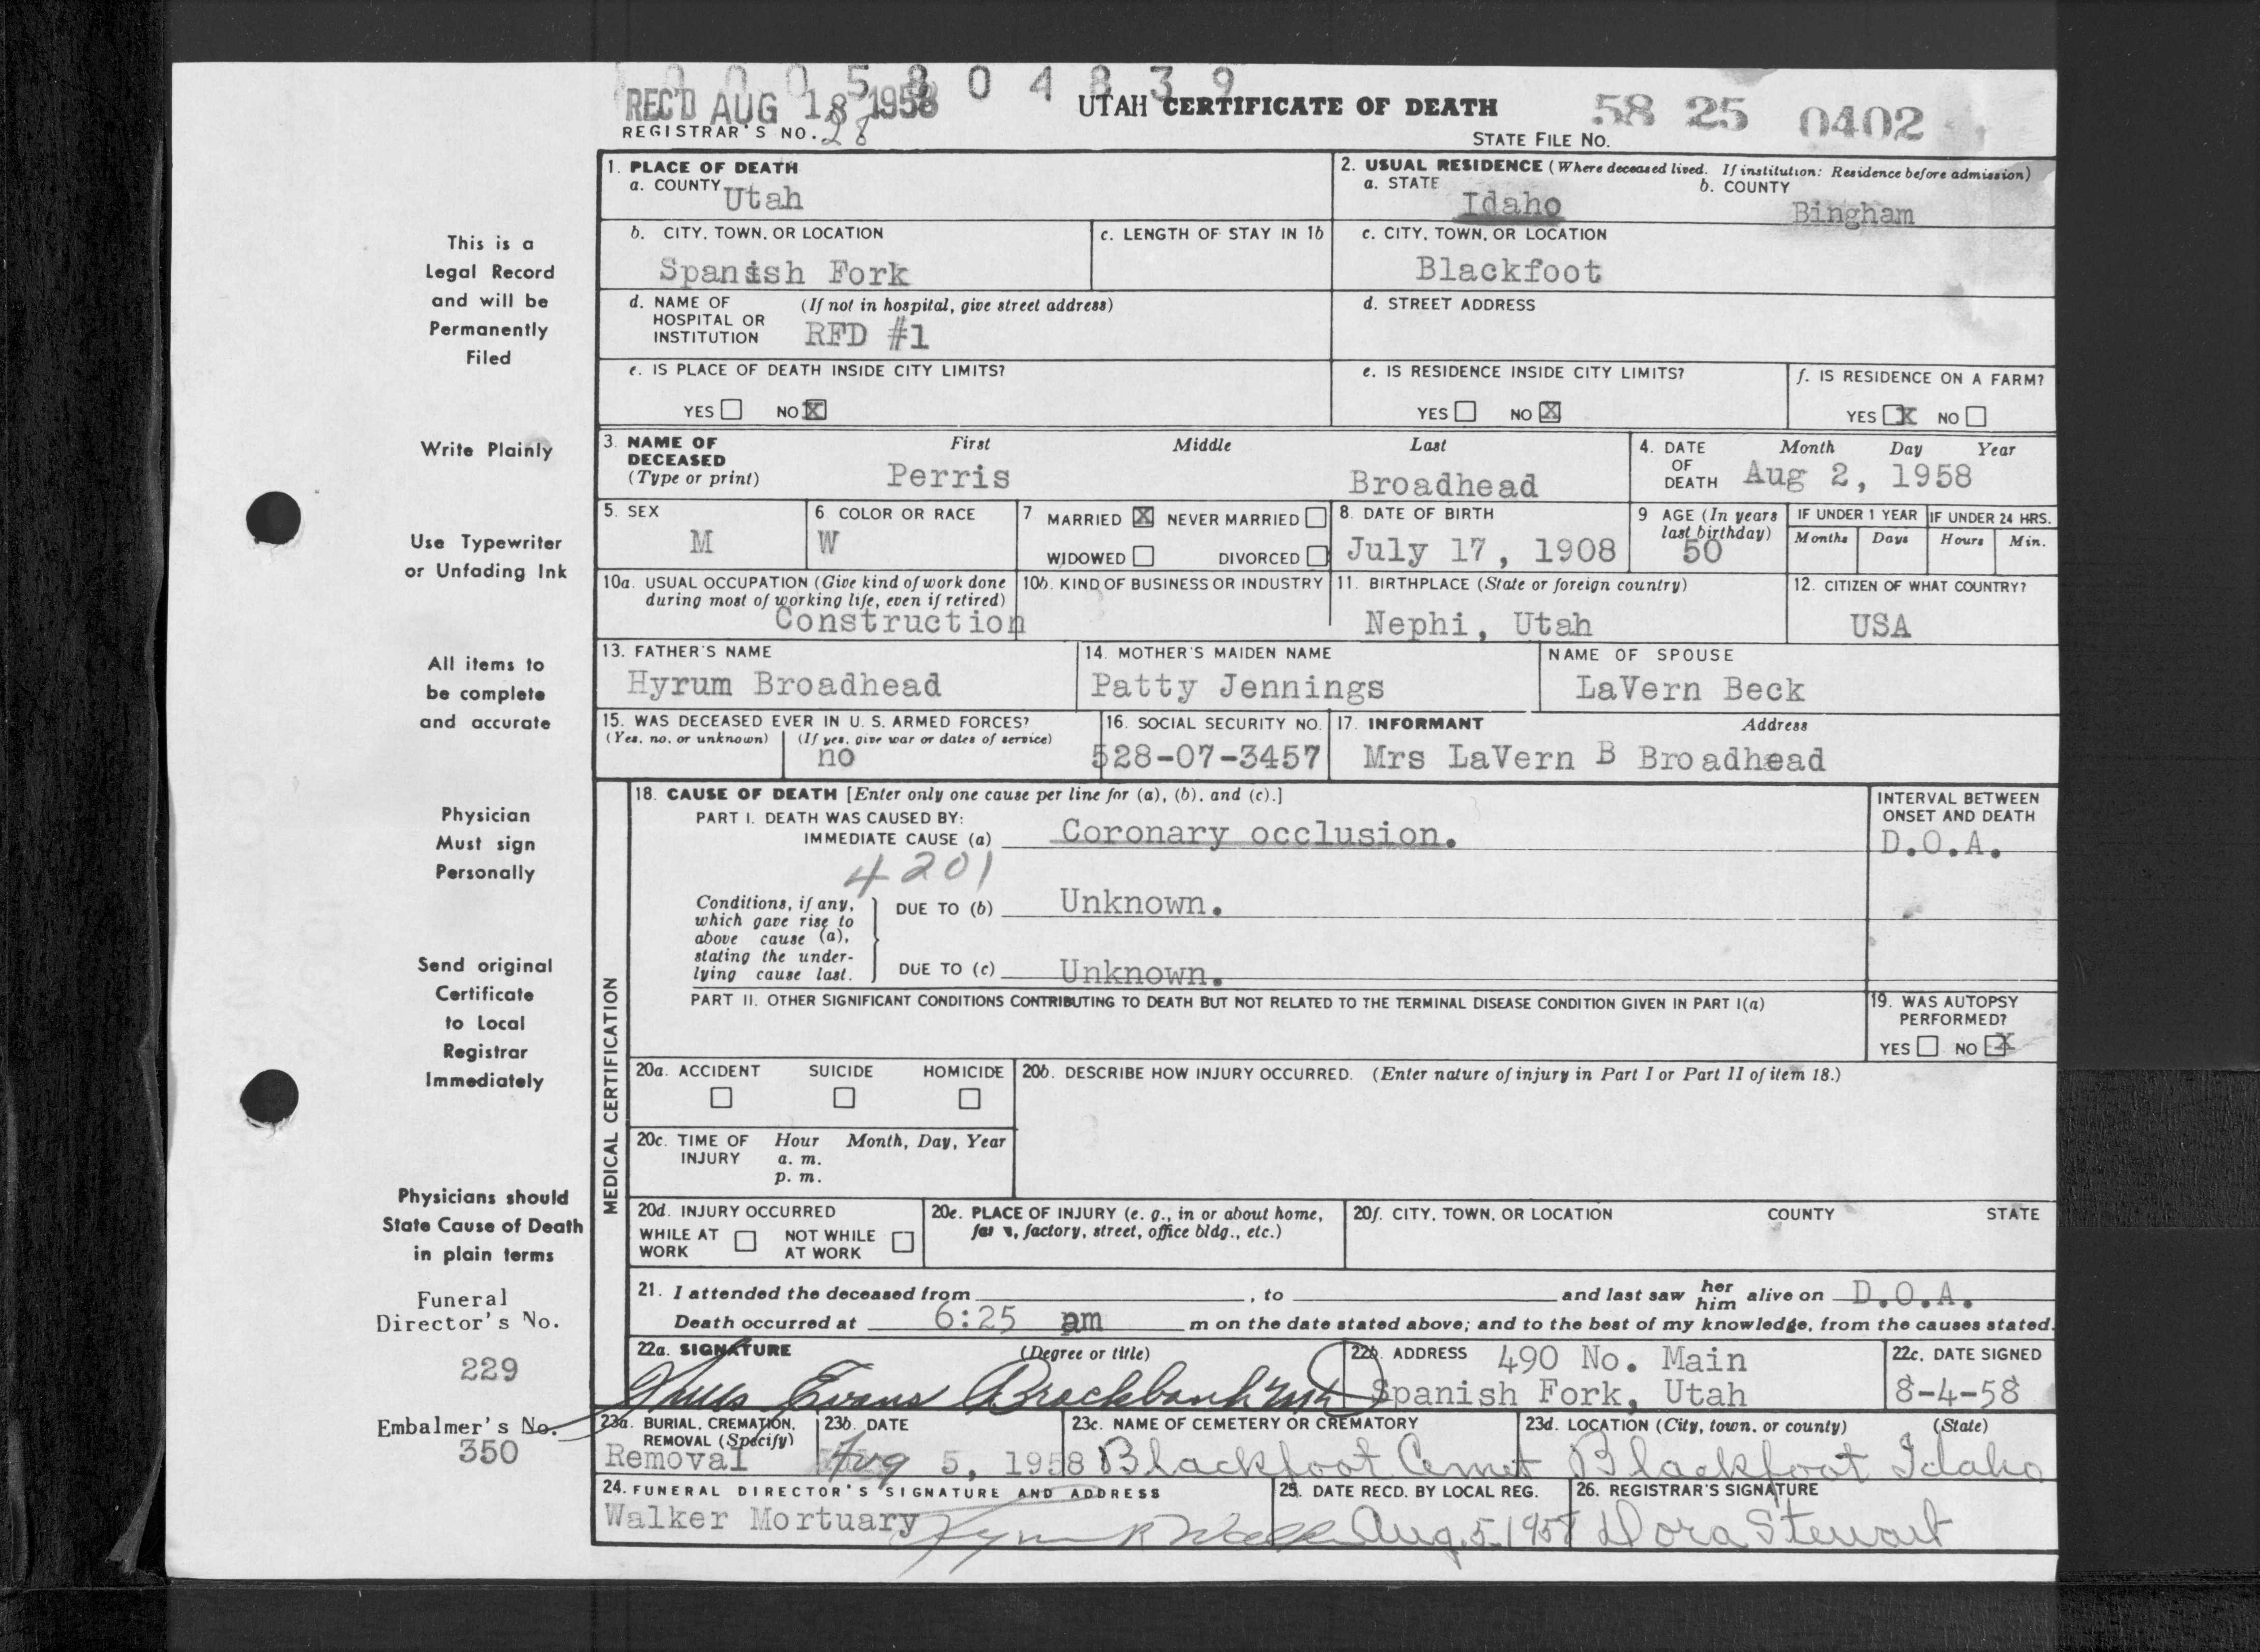 0 0 0 5 8 0 4 8 3 9
REC'D AUG 18 1958
UTAH CERTIFICATE OF DEATH
58 25 0402
REGISTRAR'S NO. 28
STATE FILE NO.
This is a
Legal Record
and will be
Permanently
Filed
Write Plainly
Use Typewriter
or Unfading Ink
All items to
be complete
and accurate
Physician
Must sign
Personally
Send original
Certificate
to Local
Registrar
Immediately
Physicians should
State Cause of Death
in plain terms
Funeral
Director's No.
229
Embalmer's No.
350
1. PLACE OF DEATH
a. COUNTY Utah
2. USUAL RESIDENCE (Where deceased lived. If institution: Residence before admission)
a. STATE Idaho
b. COUNTY Bingham
b. CITY, TOWN, OR LOCATION
Spanish Fork
c. LENGTH OF STAY IN 1b
c. CITY, TOWN, OR LOCATION
Blackfoot
d. NAME OF (If not in hospital, give street address)
HOSPITAL OR
INSTITUTION RFD #1
d. STREET ADDRESS
e. IS PLACE OF DEATH INSIDE CITY LIMITS?
YES NO X
e. IS RESIDENCE INSIDE CITY LIMITS?
YES NO X
f. IS RESIDENCE ON A FARM?
YES X NO
3. NAME OF First Middle Last
DECEASED
(Type or print) Perris Broadhead
4. DATE Month Day Year
OF
DEATH Aug 2, 1958
5. SEX
M
6. COLOR OR RACE
W
7 MARRIED X NEVER MARRIED
WIDOWED DIVORCED
8. DATE OF BIRTH
July 17, 1908
9 AGE (In years
last birthday)
50
IF UNDER 1 YEAR
Months Days
IF UNDER 24 HRS.
Hours Min.
10a. USUAL OCCUPATION (Give kind of work done
during most of working life, even if retired)
Construction
10b. KIND OF BUSINESS OR INDUSTRY
11. BIRTHPLACE (State or foreign country)
Nephi, Utah
12. CITIZEN OF WHAT COUNTRY?
USA
13. FATHER'S NAME
Hyrum Broadhead
14. MOTHER'S MAIDEN NAME
Patty Jennings
NAME OF SPOUSE
LaVern Beck
15. WAS DECEASED EVER IN U. S. ARMED FORCES?
(Yes, no, or unknown) (If yes, give war or dates of service)
no
16. SOCIAL SECURITY NO.
528-07-3457
17. INFORMANT Address
Mrs LaVern B Broadhead
MEDICAL CERTIFICATION
18. CAUSE OF DEATH [Enter only one cause per line for (a), (b), and (c).]
PART I. DEATH WAS CAUSED BY:
IMMEDIATE CAUSE (a) Coronary occlusion.
INTERVAL BETWEEN
ONSET AND DEATH
D.O.A.
4201
Conditions, if any,
which gave rise to
above cause (a),
stating the under-
lying cause last.
DUE TO (b) Unknown.
DUE TO (c) Unknown.
PART II. OTHER SIGNIFICANT CONDITIONS CONTRIBUTING TO DEATH BUT NOT RELATED TO THE TERMINAL DISEASE CONDITION GIVEN IN PART I(a)
19. WAS AUTOPSY
PERFORMED?
YES NO X
20a. ACCIDENT SUICIDE HOMICIDE
20b. DESCRIBE HOW INJURY OCCURRED. (Enter nature of injury in Part I or Part II of item 18.)
20c. TIME OF Hour Month, Day, Year
INJURY a. m.
p. m.
20d. INJURY OCCURRED
WHILE AT NOT WHILE
WORK AT WORK
20e. PLACE OF INJURY (e. g., in or about home,
farm, factory, street, office bldg., etc.)
20f. CITY, TOWN, OR LOCATION COUNTY STATE
21. I attended the deceased from , to and last saw her him alive on D.O.A.
Death occurred at 6:25 am m on the date stated above; and to the best of my knowledge, from the causes stated.
22a. SIGNATURE (Degree or title)
Evans Brockbank
22b. ADDRESS 490 No. Main
Spanish Fork, Utah
22c. DATE SIGNED
8-4-58
23a. BURIAL, CREMATION,
REMOVAL (Specify)
Removal
23b. DATE
Aug 5, 1958
23c. NAME OF CEMETERY OR CREMATORY
Blackfoot Cemet
23d. LOCATION (City, town, or county) (State)
Blackfoot Idaho
24. FUNERAL DIRECTOR'S SIGNATURE AND ADDRESS
Walker Mortuary
25. DATE RECD. BY LOCAL REG.
Aug. 5, 1958
26. REGISTRAR'S SIGNATURE
Dora Stewart